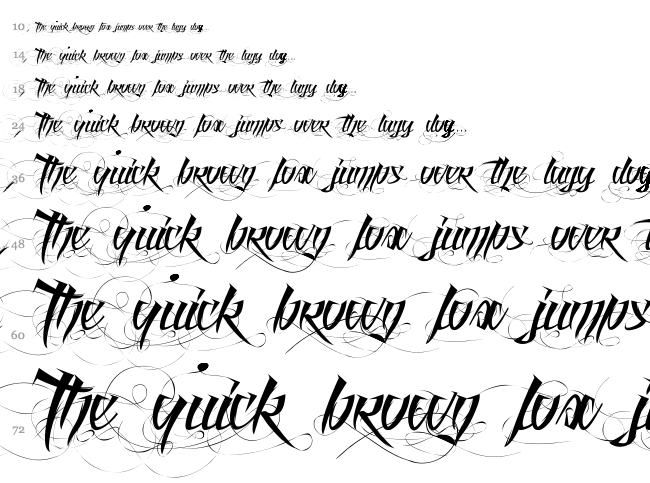 10 The quick brown fox jumps over the lazy dog...
14 The quick brown fox jumps over the lazy dog...
18 The quick brown fox jumps over the lazy dog...
24 The quick brown fox jumps over the lazy dog...
36 The quick brown fox jumps over the lazy dog
48 The quick brown fox jumps over
60 The quick brown fox jumps
72 The quick brown fox